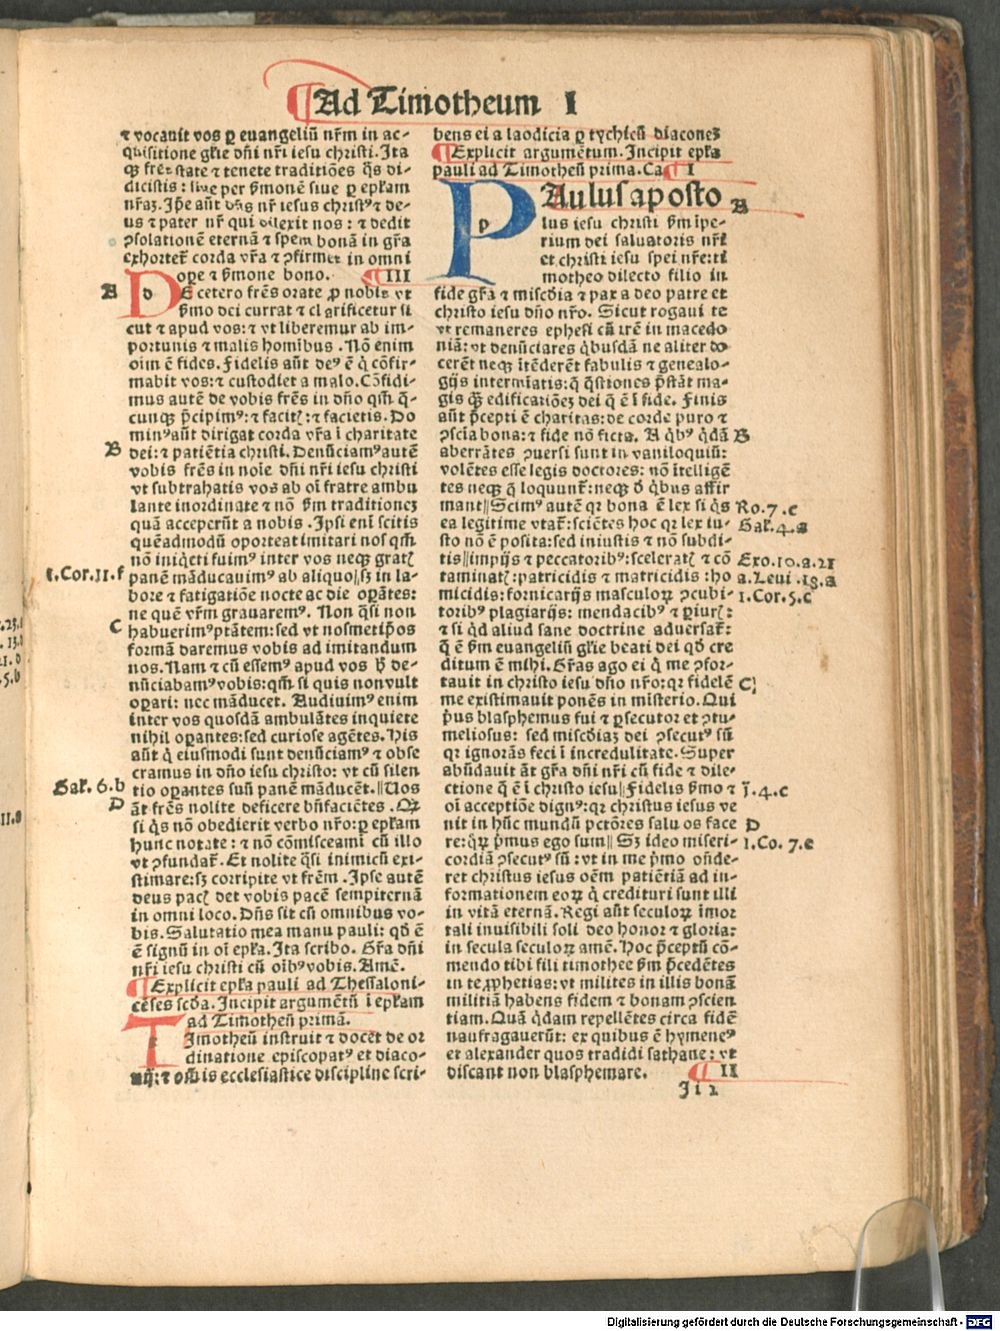 Ad Timotheum I
⁊ vocauit vos ꝑ euangeliũ nr̃m in ac-
quisitione gl̃ie dñi nr̃i iesu christi. Ita
qꝫ fr̃es state ⁊ tenete traditiões q̃s di-
dicistis: siue per ẜmonẽ siue ꝑ epl̃am
nr̃aꝫ. Ip̃e aũt dñs nr̃ iesus christꝰ ⁊ de-
us ⁊ pater nr̃ qui dilexit nos: ⁊ dedit
ꝯsolationẽ eternã ⁊ spem bonã in gr̃a
exhortet᷑ corda vr̃a ⁊ ꝯfirmet in omni
ope ⁊ ẜmone bono. III
A
De cetero fr̃es orate ꝓ nobis vt
ẜmo dei currat ⁊ clarificetur si
cut ⁊ apud vos: ⁊ vt liberemur ab im-
portunis ⁊ malis homĩbus. Nõ enim
oĩm ẽ fides. Fidelis aũt deꝰ ẽ q̇ cõfir-
mabit vos: ⁊ custodiet a malo. Cõfidi-
mus autẽ de vobis fr̃es in dño qm̃ q̃-
cunqꝫ p̃cipimꝰ: ⁊ facitꝭ: ⁊ facietis. Do
minꝰ aũt dirigat corda vr̃a ĩ charitate
B dei: ⁊ patiẽtia christi. Denũciamꝰ autẽ
vobis fr̃es in noĩe dñi nr̃i iesu christi
vt subtrahatis vos ab oĩ fratre ambu
lante inordinate ⁊ nõ ẜm traditioneꝫ
quã acceperũt a nobis. Ipsi enĩ scitis
quẽadmodũ oporteat imitari nos qm̃
nõ inq̇eti fuimꝰ inter vos neqꝫ gratꝭ
1.Cor.11.f panẽ mãducauimꝰ ab aliquo ‖ sꝫ in la-
bore ⁊ fatigatiõe nocte ac die oꝑãtes:
ne quẽ vr̃m grauaremꝰ. Non q̃si non
C habuerimꝰ ptãtem: sed vt nosmetip̃os
formã daremus vobis ad imitandum
nos. Nam ⁊ cũ essemꝰ apud vos h̃ de-
nũciabamꝰ vobis: qm̃ si quis non vult
oꝑari: nec mãducet. Audiuimꝰ enim
inter vos quosdã ambulãtes inquiete
nihil oꝑantes: sed curiose agẽtes. His
aũt q̇ eiusmodi sunt denũciamꝰ ⁊ obse
cramus in dño iesu christo: vt cũ silen
Gal. 6.b tio oꝑantes suũ panẽ mãducẽt. ‖ Uos
D ãt fr̃es nolite deficere bñfaciẽtes. Qꝫ
si q̇s nõ obedierit verbo nr̃o: ꝑ epl̃am
hunc notate: ⁊ nõ cõmisceami cũ illo
vt ꝯfundat᷑. Et nolite q̃si inimicũ exi-
stimare: sꝫ corripite vt fr̃em. Ipse autẽ
deus pacꝭ det vobis pacẽ sempiternã
in omni loco. Dñs sit cũ omnibus vo-
bis. Salutatio mea manu pauli: qd̃ ẽ
ẽ signũ in oĩ epl̃a. Ita scribo. Gr̃a dñi
nr̃i iesu christi cũ oĩbꝰ vobis. Amẽ.
Explicit epl̃a pauli ad Thessaloni-
cẽses scd̃a. Incipit argumẽtũ ĩ epl̃am
ad Timotheũ primã.
Timotheũ instruit ⁊ docet de or
dinatione episcopatꝰ et diaco-
nij: ⁊ oĩs ecclesiastice discipline scri-
bens ei a laodicia ꝑ tychicũ diaconeꝫ
Explicit argumẽtum. Incipit epl̃a
pauli ad Timotheũ prima. Ca I
Paulus aposto A
lus iesu christi ẜm ipe-
rium dei saluatoris nr̃i
et christi iesu spei nr̃e: ti
motheo dilecto filio in
fide gr̃a ⁊ mis̃cdia ⁊ pax a deo patre et
christo iesu dño nr̃o. Sicut rogaui te
vt remaneres ephesi cũ irẽ in macedo
niã: vt denũciares q̇busdã ne aliter do
cerẽt neqꝫ ĩtẽderẽt fabulis ⁊ genealo-
gijs intermĩatis: q̃ q̃stiones p̃stãt ma-
gis qꝫ edificatiõeꝫ dei q̃ ẽ ĩ fide. Finis
aũt p̃cepti ẽ charitas: de corde puro ⁊
ꝯscĩa bona: ⁊ fide nõ ficta. A q̇bꝰ q̇dã B
aberrãtes ꝯuersi sunt in vaniloquiũ:
volẽtes esse legis doctores: nõ ĩtelligẽ
tes neqꝫ q̃ loquunt᷑: neqꝫ d̃ q̇bus affir
mant ‖ Scimꝰ autẽ qꝛ bona ẽ lex si q̇s Ro.7.c
ea legitime vtat᷑: sciẽtes hoc qꝛ lex iu- Gal.4.a
sto nõ ẽ posita: sed iniustis ⁊ nõ subdi-
tis ‖ impijs ⁊ peccatoribꝰ: sceleratꝭ ⁊ cõ Exo.10.a.21
taminatꝭ: patricidis ⁊ matricidis: ho a.Leui.18.a
micidis: fornicarijs masculoꝝ ꝯcubi- 1.Cor.5.c
toribꝰ plagiarijs: mendacibꝰ ⁊ ꝑiurꝭ:
⁊ si q̇d aliud sane doctrine aduersat᷑:
q̃ ẽ ẜm euangeliũ gl̃ie beati dei qd̃ cre
ditum ẽ mihi. Gr̃as ago ei q̇ me ꝯfor-
tauit in christo iesu dño nr̃o: qꝛ fidelẽ C
me existimauit ponẽs in misterio. Qui
p̃us blasphemus fui ⁊ ꝑsecutor et ꝯtu-
meliosus: sed mis̃cdiaꝫ dei ꝯsecutꝰ sũ
qꝛ ignorãs feci ĩ incredulitate. Super
abũdauit ãt gr̃a dñi nr̃i cũ fide ⁊ dile-
ctione q̃ ẽ ĩ christo iesu ‖ Fidelis ẜmo ⁊ j.4.c
oĩ acceptiõe dignꝰ: qꝛ christus iesus ve
nit in hũc mundũ pctõres saluos face D
re: qꝝ p̃mus ego sum ‖ Sꝫ ideo miseri- 1.Co. 7.e
cordiã ꝯsecutꝰ sũ: vt in me p̃mo oñde-
ret christus iesus oẽm patiẽtiã ad in-
formationem eoꝝ q̇ credituri sunt illi
in vitã eternã. Regi aũt seculoꝝ ĩmor
tali inuisibili soli deo honor ⁊ gloria:
in secula seculoꝝ amẽ. Hoc p̃ceptũ cõ-
mendo tibi fili timothee ẜm p̃cedẽtes
in te ꝓphetias: vt milites in illis bonã
militiã habens fidem ⁊ bonam ꝯscien
tiam. Quã q̇dam repellẽtes circa fidẽ
naufragauerũt: ex quibus ẽ hymeneꝰ
et alexander quos tradidi sathane: vt
discant non blasphemare. II
Ji 2
Digitalisierung gefördert durch die Deutsche Forschungsgemeinschaft - DFG